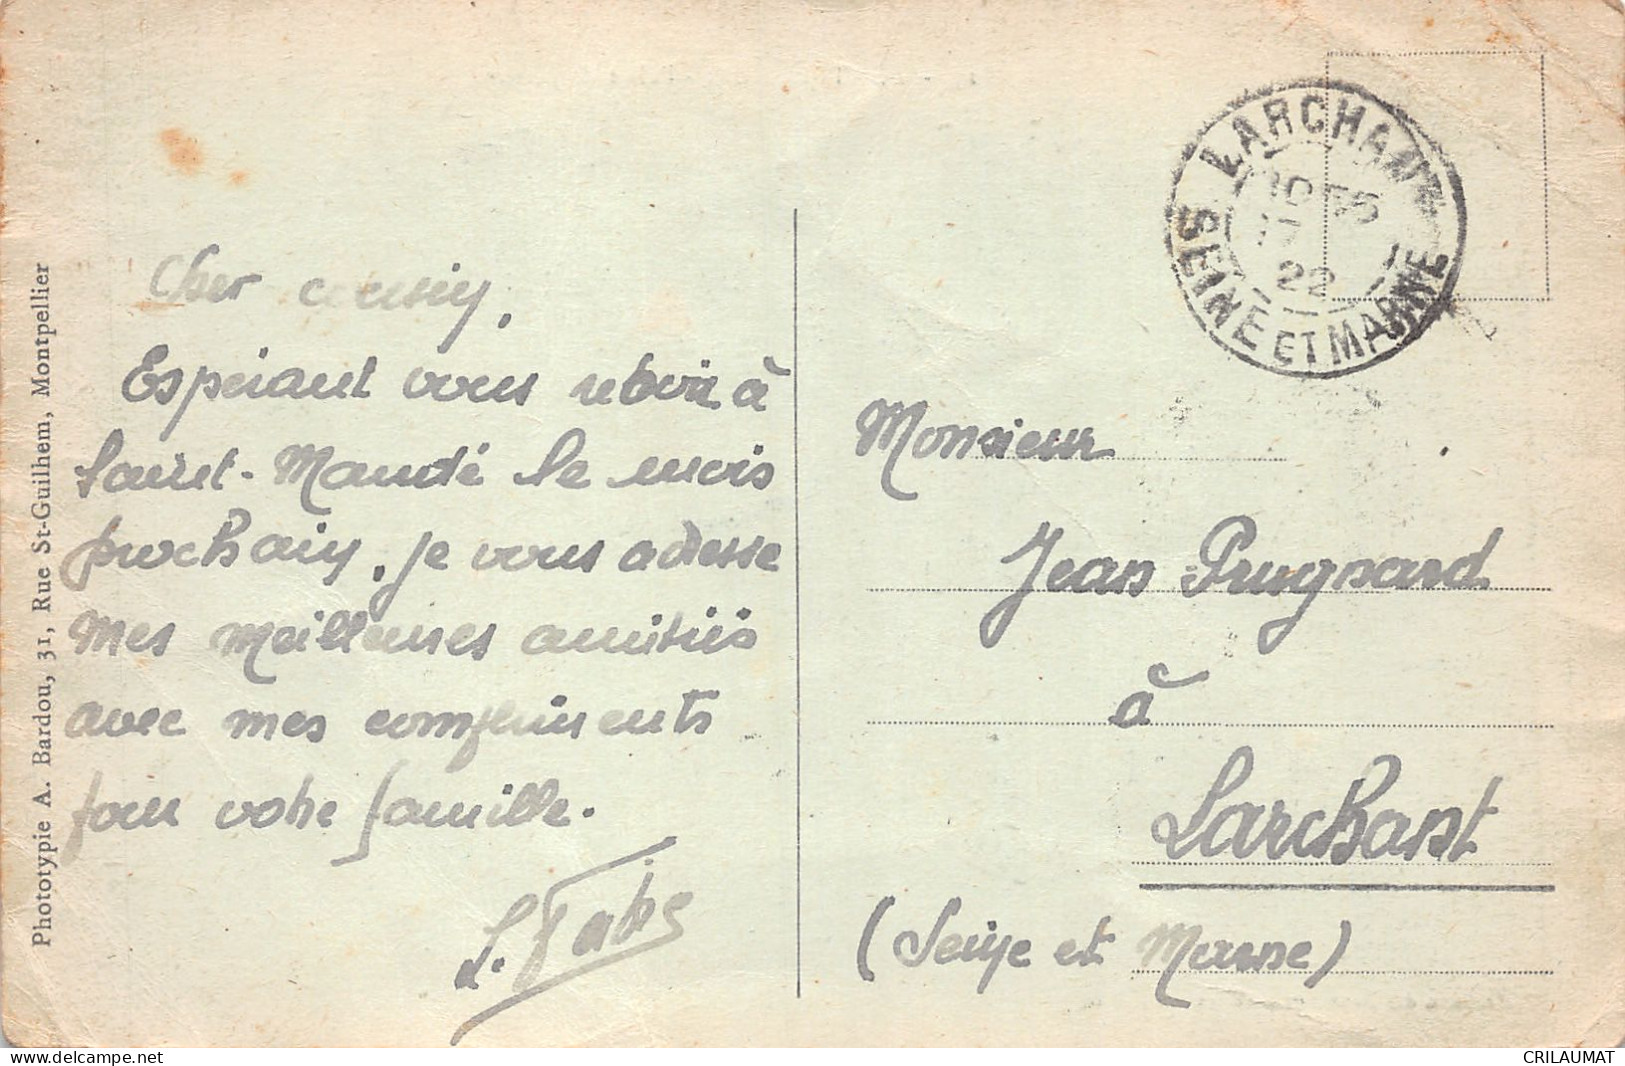 Phototypie A. Bardou, 31, Rue St-Guilhem, Montpellier
Cher cousin,
Espérant vous revoir à
Saint-Mandé le mois
prochain, je vous adresse
mes meilleures amitiés
avec mes compliments
pour votre famille.
LARCHANT
22
SEINE ET MARNE
Monsieur
Jean Prugnard
à
Larchant
(Seine et Marne)
www.delcampe.net
CRILAUMAT